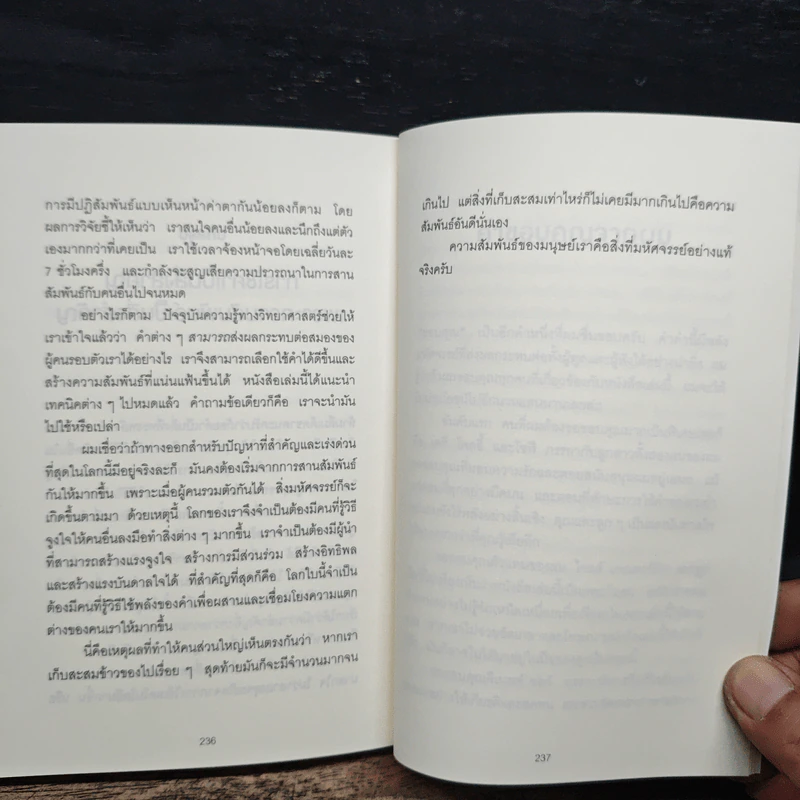 การมีปฏิสัมพันธ์แบบเห็นหน้าค่าตากันน้อยลงก็ตาม โดย
ผลการวิจัยชี้ให้เห็นว่า เราสนใจคนอื่นน้อยลงและนึกถึงแต่ตัว
เองมากกว่าที่เคยเป็น เราใช้เวลาจ้องหน้าจอโดยเฉลี่ยวันละ
7 ชั่วโมงครึ่ง และกำลังจะสูญเสียความปรารถนาในการสาน
สัมพันธ์กับคนอื่นไปจนหมด
อย่างไรก็ตาม ปัจจุบันความรู้ทางวิทยาศาสตร์ช่วยให้
เราเข้าใจแล้วว่า คำต่าง ๆ สามารถส่งผลกระทบต่อสมองของ
ผู้คนรอบตัวเราได้อย่างไร เราจึงสามารถเลือกใช้คำได้ดีขึ้นและ
สร้างความสัมพันธ์ที่แน่นแฟ้นขึ้นได้ หนังสือเล่มนี้ได้แนะนำ
เทคนิคต่าง ๆ ไปหมดแล้ว คำถามข้อเดียวก็คือ เราจะนำมัน
ไปใช้หรือเปล่า
ผมเชื่อว่าถ้าทางออกสำหรับปัญหาที่สำคัญและเร่งด่วน
ที่สุดในโลกนี้มีอยู่จริงละก็ มันคงต้องเริ่มจากการสานสัมพันธ์
กันให้มากขึ้น เพราะเมื่อผู้คนรวมตัวกันได้ สิ่งมหัศจรรย์ก็จะ
เกิดขึ้นตามมา ด้วยเหตุนี้ โลกของเราจึงจำเป็นต้องมีคนที่รู้วิธี
จูงใจให้คนอื่นลงมือทำสิ่งต่าง ๆ มากขึ้น เราจำเป็นต้องมีผู้นำ
ที่สามารถสร้างแรงจูงใจ สร้างการมีส่วนร่วม สร้างอิทธิพล
และสร้างแรงบันดาลใจได้ ที่สำคัญที่สุดก็คือ โลกใบนี้จำเป็น
ต้องมีคนที่รู้วิธีใช้พลังของคำเพื่อผสานและเชื่อมโยงความแตก
ต่างของคนเราให้มากขึ้น
นี่คือเหตุผลที่ทำให้คนส่วนใหญ่เห็นตรงกันว่า หากเรา
เก็บสะสมข้าวของไปเรื่อย ๆ สุดท้ายมันก็จะมีจำนวนมากจน
236
เกินไป แต่สิ่งที่เก็บสะสมเท่าไหร่ก็ไม่เคยมีมากเกินไปคือความ
สัมพันธ์อันดีนั่นเอง
ความสัมพันธ์ของมนุษย์เราคือสิ่งที่มหัศจรรย์อย่างแท้
จริงครับ
237